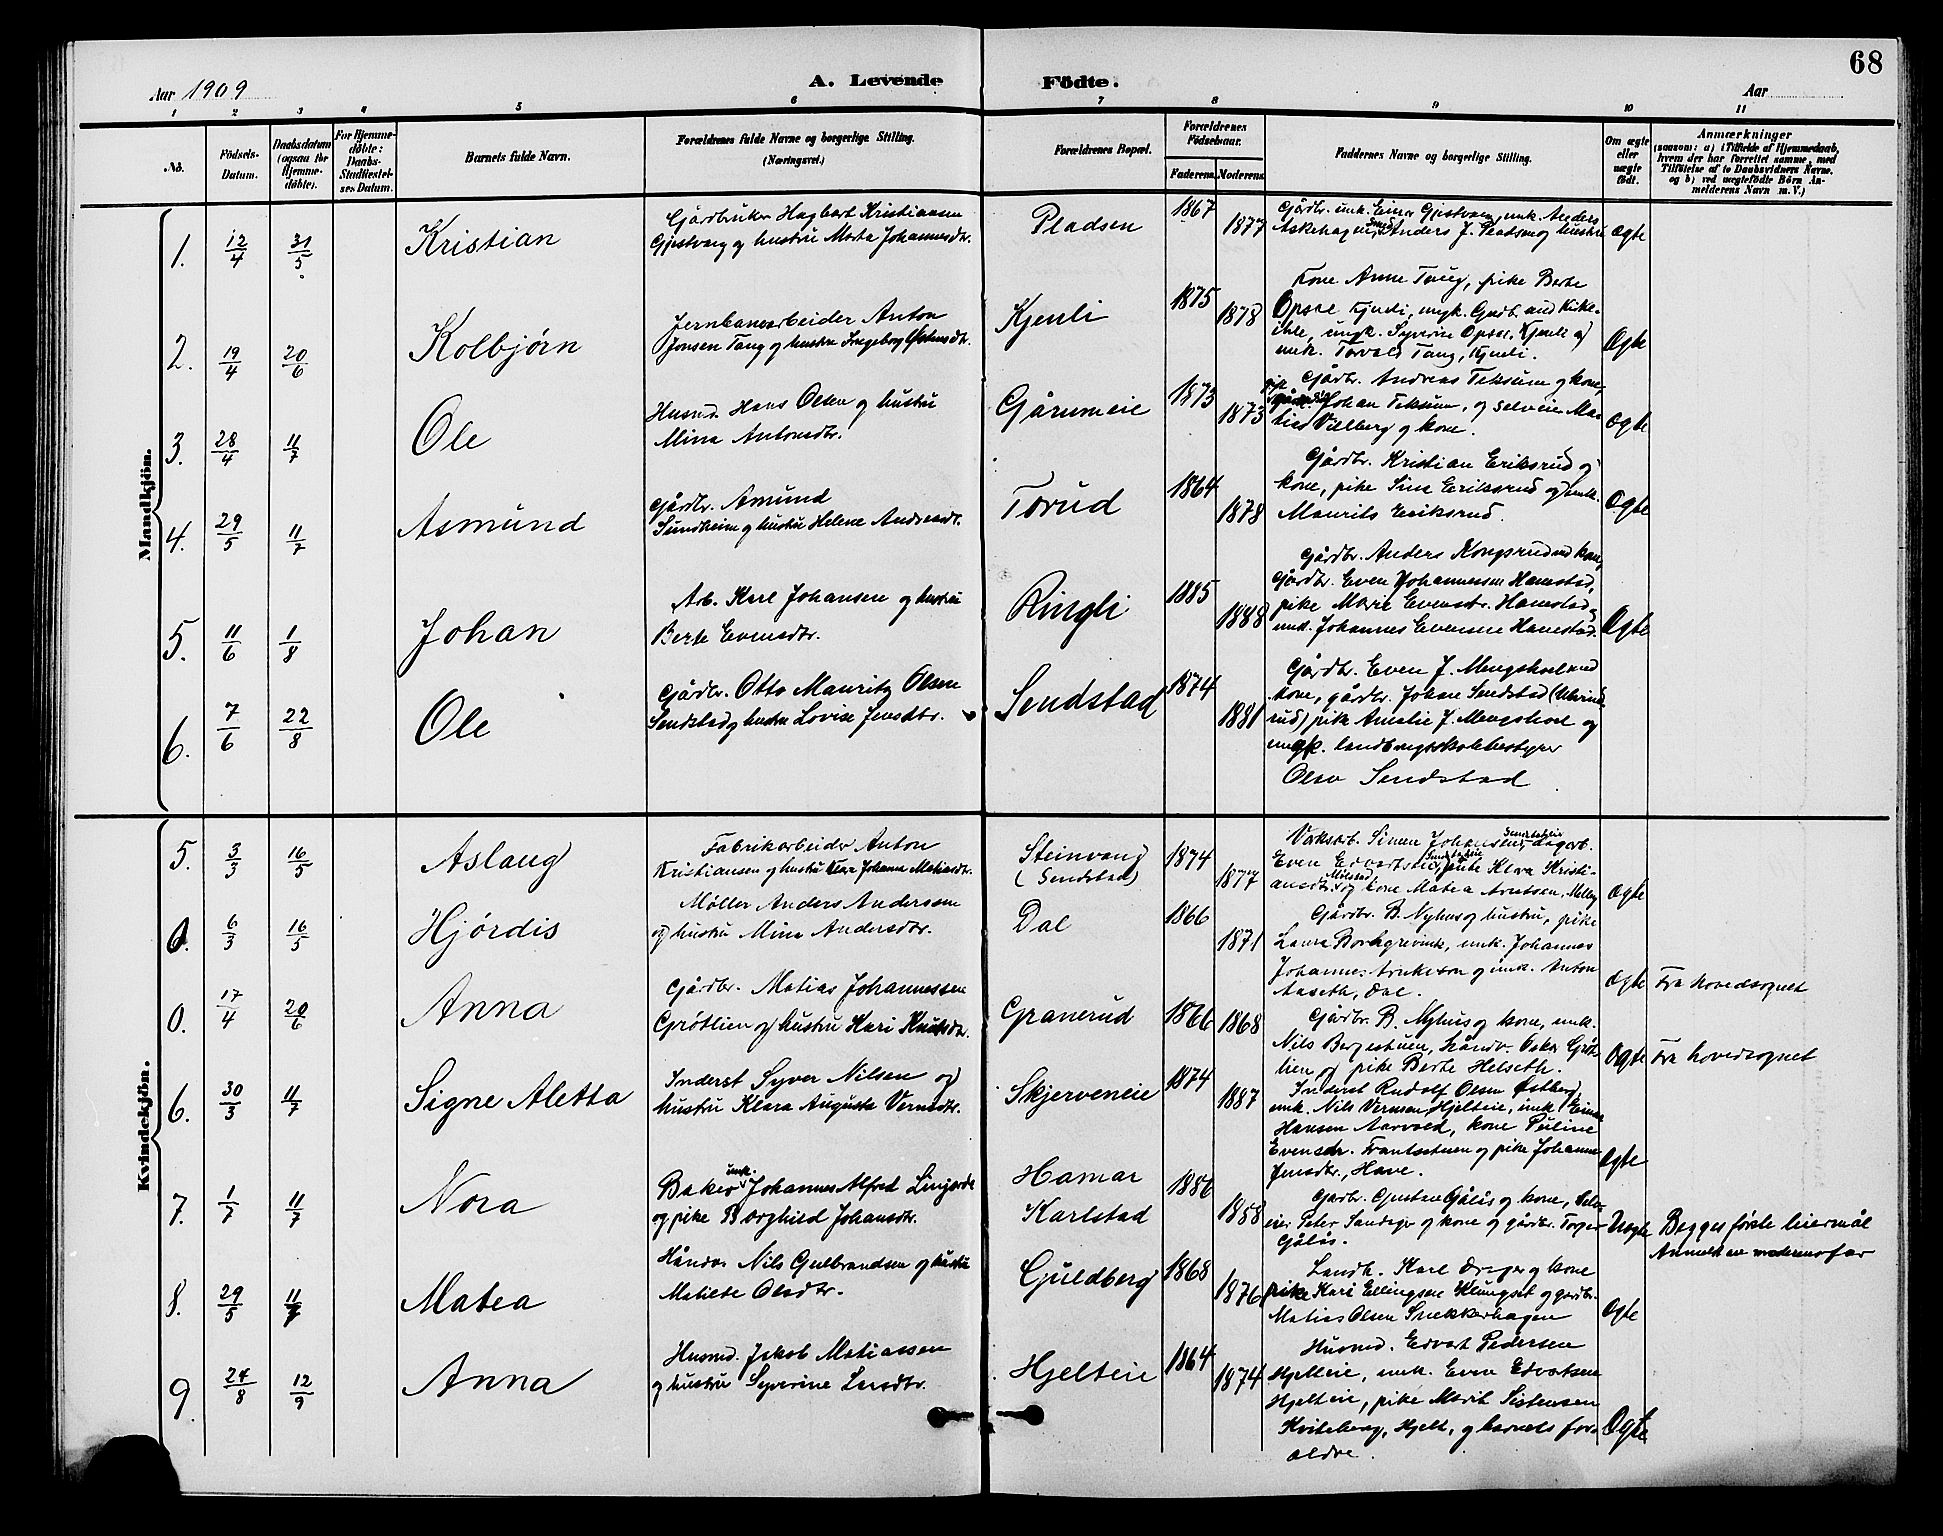 68
Aar 1909
A. Levende Födte.
Aar
1 2 3 4 5 6 7 8 9 10 11
No.
Födsels-Datum.
Daabsdatum (ogsaa for Hjemmedöbte).
For Hjemmedöbte: Daabs-Stadfæstelses Datum.
Barnets fulde Navn.
Forældrenes fulde Navne og borgerlige Stilling. (Næringsvei.)
Forældrenes Bopæl.
Forældrenes Födselsaar.
Faderens. Moderens.
Faddernes Navne og borgerlige Stilling.
Om ægte eller uægte födt.
Anmærkninger
(saasom: a) i Tilfælde af Hjemmedaab,
hvem der har forrettet samme, med
Tilföielse af to Daabsvidners Navne.
og b) ved uægtefödte Börn An-
melderens Navn m. V.)
Mandkjön.
1. 12/4 31/5 Kristian
Gårdbruker Hagbart Kristiansen
Gjestvang og hustru Marta Johannesdtr.
Pladsen 1867 1877
Gårdbr. umk. Einar Gjestvang, umk. Anders
Askehagen, Anders J. Pladsen og hustru
Ægte
2. 19/4 20/6 Kolbjørn
Jernbanearbeider Anton
Jonsen Taug og hustru Ingeborg
Kjenli 1875 1878
Kone Anne Taug, pike Berte
Opsal Kjenli, ungk.
ungk. Syverin Opsal, Kjenli og
umk. Torvald Taug, Kjenli.
Ægte
3. 28/4 11/7 Ole
Husmd. Hans Olsen og hustru
Mina Antonsdtr.
Gårumeie 1873 1873
Gårdbr. Andreas Teksum og kone,
Johan Teksum, og selveier Ma-
tias Villberg og kone.
Ægte
4. 29/5 11/7 Asmund
Gårdbr. Amund
Sundheim og hustru Helene Andreasdtr.
Torud 1864 1878
Gårdbr. Kristian Eriksrud og
kone, pike Sina Eriksrud og umk.
Maurits Eriksrud.
Ægte
5. 11/6 1/8 Johan
Arb. Karl Johansen og hustru
Berte Evensdtr.
Ringli 1885 1888
Gårdbr. Anders Kongsrud og kone,
gårdbr. Even Johannessen Hamstad,
pike Marie Evensdtr. Hamstad,
umk. Johannes Evensen Hamstad.
Ægte
6. 7/6 22/8 Ole
Gårdbr. Otto Mauritz Olsen
Sendstad og hustru Lovise Jensdtr.
Sendstad 1874 1881
Gårdbr. Even J. Mengshoel med
kone, gårdbr. Johan Sendstad
pike Amalie J. Mengshoel og
ungk. landbrugsskolebestyrer
Olav Sendstad
Kvindekjön.
5. 3/3 16/5 Aslaug
Fabrikarbeider Anton
Kristiansen og hustru Klara Johanna Matiasdtr.
Steinvang
(Sendstad) 1874 1877
Simen Johansen, Sendstadeie
Even Edvartsen, Sendstadeie, pike Klara Kristi-
ansdtr. Mølstad og kone Matea Arntsen,
Ægte
0. 6/3 16/5 Hjørdis
Møller Anders Andersen
og hustru Mina Andersdtr.
Dal 1866 1871
Gårdbr. B. Nyhus og hustru, pike
Laura Borchgrevink, umk. Johannes
og umk. Anton
Aaseth, Dal.
Ægte Fra hovedsognet
0. 17/4 20/6 Anna
Gårdbr. Matias Johannessen
Grøtlien og hustru Kari Knutsdtr.
Granerud 1866 1868
Gårdbr. B. Nyhus og kone, umk.
Nils Bergestuen, håndv. Oskar Grøt-
lien og pike Berte Helseth.
Ægte Fra hovedsognet
6. 30/3 11/7 Signe Aletta
Inderst Syver Nilsen og
hustru Klara Augusta Vernsdtr.
Skjerveneie 1874 1887
Inderst Rudolf Olsen Østberg,
umk. Nils Vernsen, Hjelteie, umk. Einar
Hansen Aarvold, kone Pauline
Evensdtr. Frantsstuen og pike Johanne
Jensdtr., Have.
Ægte
7. 1/7 11/7 Nora
Baker umk. Johannes Alfred Lingjerde
og pike Borghild Johansdtr.
Hamar
Karlstad 1886 1858
Gårdbr. Gustav Gålås og kone, Selv-
eier Peter og kone og gårdbr.
Gålås.
Uægte Begges første leiermål
Anmeldt av moderens far
8. 29/5 11/7 Matea
Håndv. Nils Gulbrandsen og hustru
Matilde Olsdtr.
Guldberg 1868 1876
Landh. Karl Dreyer og kone
pike Kari Ellingsen Klungset og gårdbr.
Matias Olsen Snekkerhagen
Ægte
9. 24/8 12/9 Anna
Husmd. Jakob Matiassen
og hustru Syverine Larsdtr.
Hjelteie 1864 1874
Husmd. Edvart Pedersen
Hjelteie, umk. Even Edvartsen
Hjelteie, pike Marit Sistensen
Kviteberg, Hjelt, og barnets for-
ældre.
Ægte